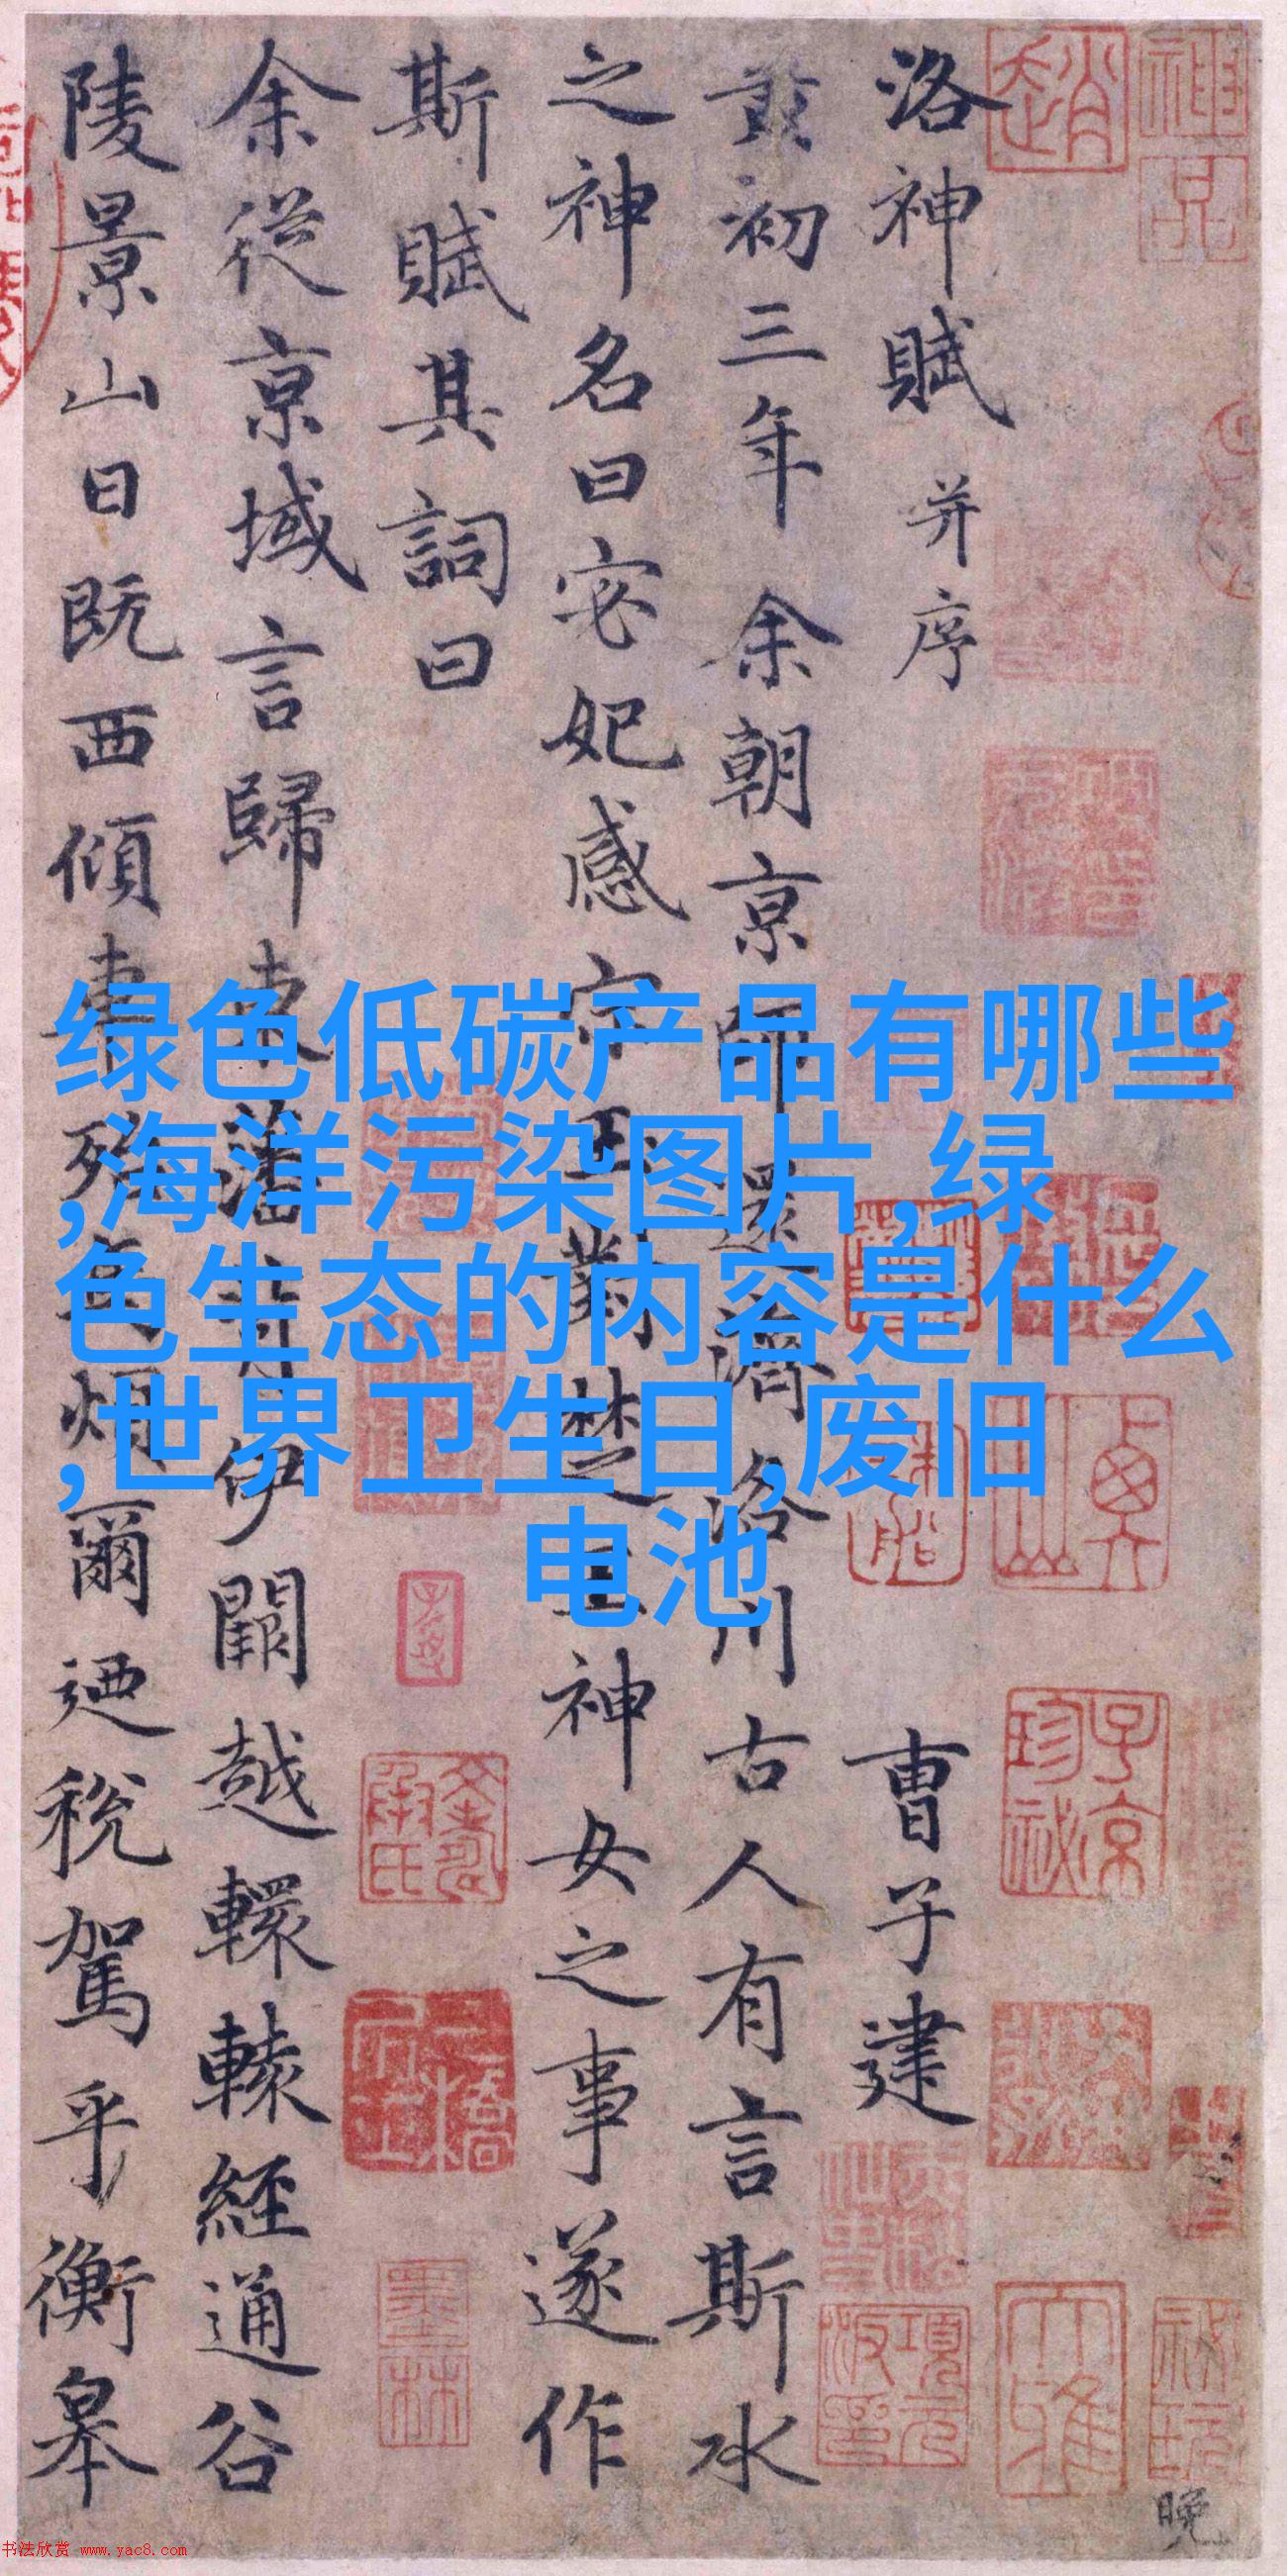 洛神賦 并序 曹子建
黄初三年余朝京師還濟洛川古人有言斯水
之神名曰宓妃感宋玉對楚王神女之事遂作
斯賦其詞曰
余從京域言歸東藩背伊闕越轘轅經通谷
陵景山日既西傾車殆馬煩爾迺稅駕乎衡皋
绿色低碳产品有哪些
,海洋污染图片,绿
色生态的内容是什么
,世界卫生日,废旧
电池
趙
子京
珍祕
項元
墨林
晚
书法欣赏 www.yac8.com